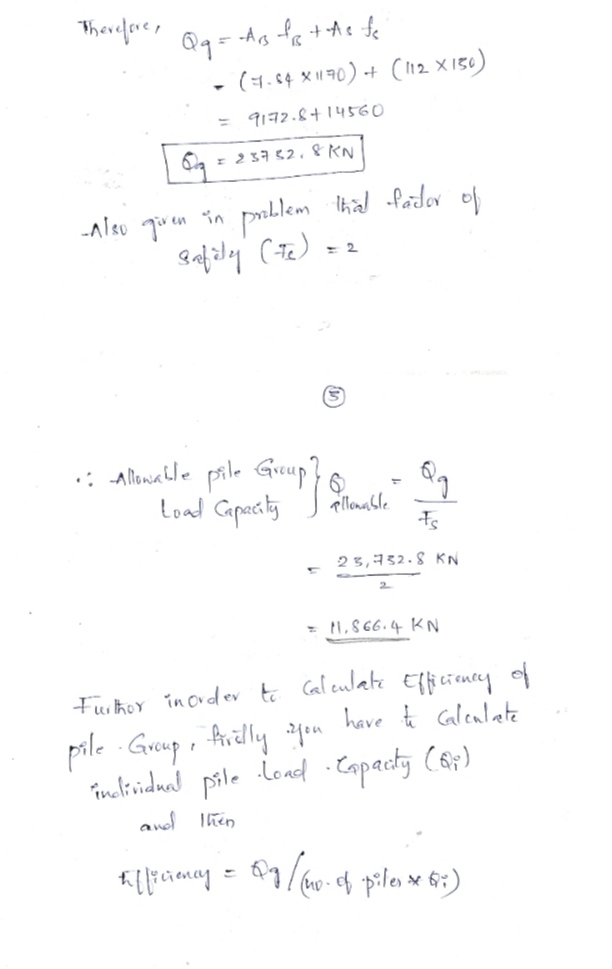 Therefore,
Qg = AB fB + As fs
= (7.84 × 1170) + (112 × 130)
= 9172.8 + 14560
Qg = 23732.8 KN
Also given in problem that factor of
safety (Fs) = 2
5
∴ Allowable pile Group } Q allowable = Qg / Fs
Load Capacity
= 23,732.8 KN / 2
= 11,866.4 KN
Further inorder to Calculate Efficiency of
pile Group, firstly you have to Calculate
individual pile Load Capacity (Qi)
and then
Efficiency = Qg / (no. of piles * Qi)